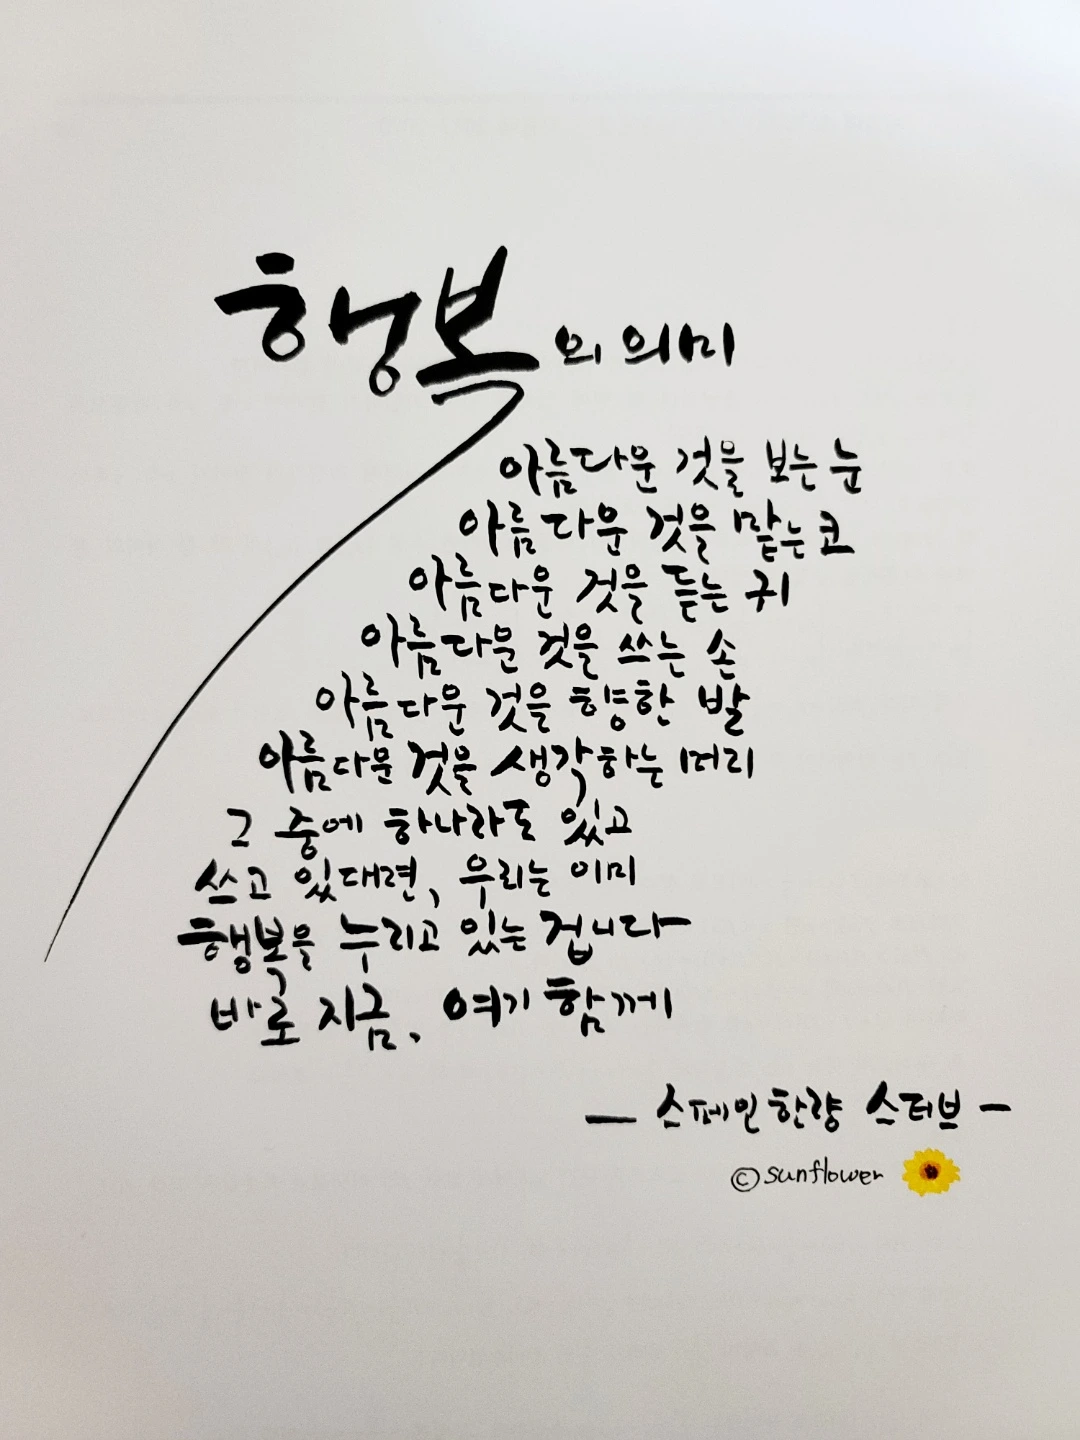 행복의 의미
아름다운 것을 보는 눈
아름다운 것을 맡는 코
아름다운 것을 듣는 귀
아름다운 것을 쓰는 손
아름다운 것을 향한 발
아름다운 것을 생각하는 머리
그 중에 하나라도 있고
쓰고 있대면, 우리는 이미
행복을 누리고 있는 겁니다
바로 지금, 여기 함께
- 스페인한량 스티브 -
©sunflower